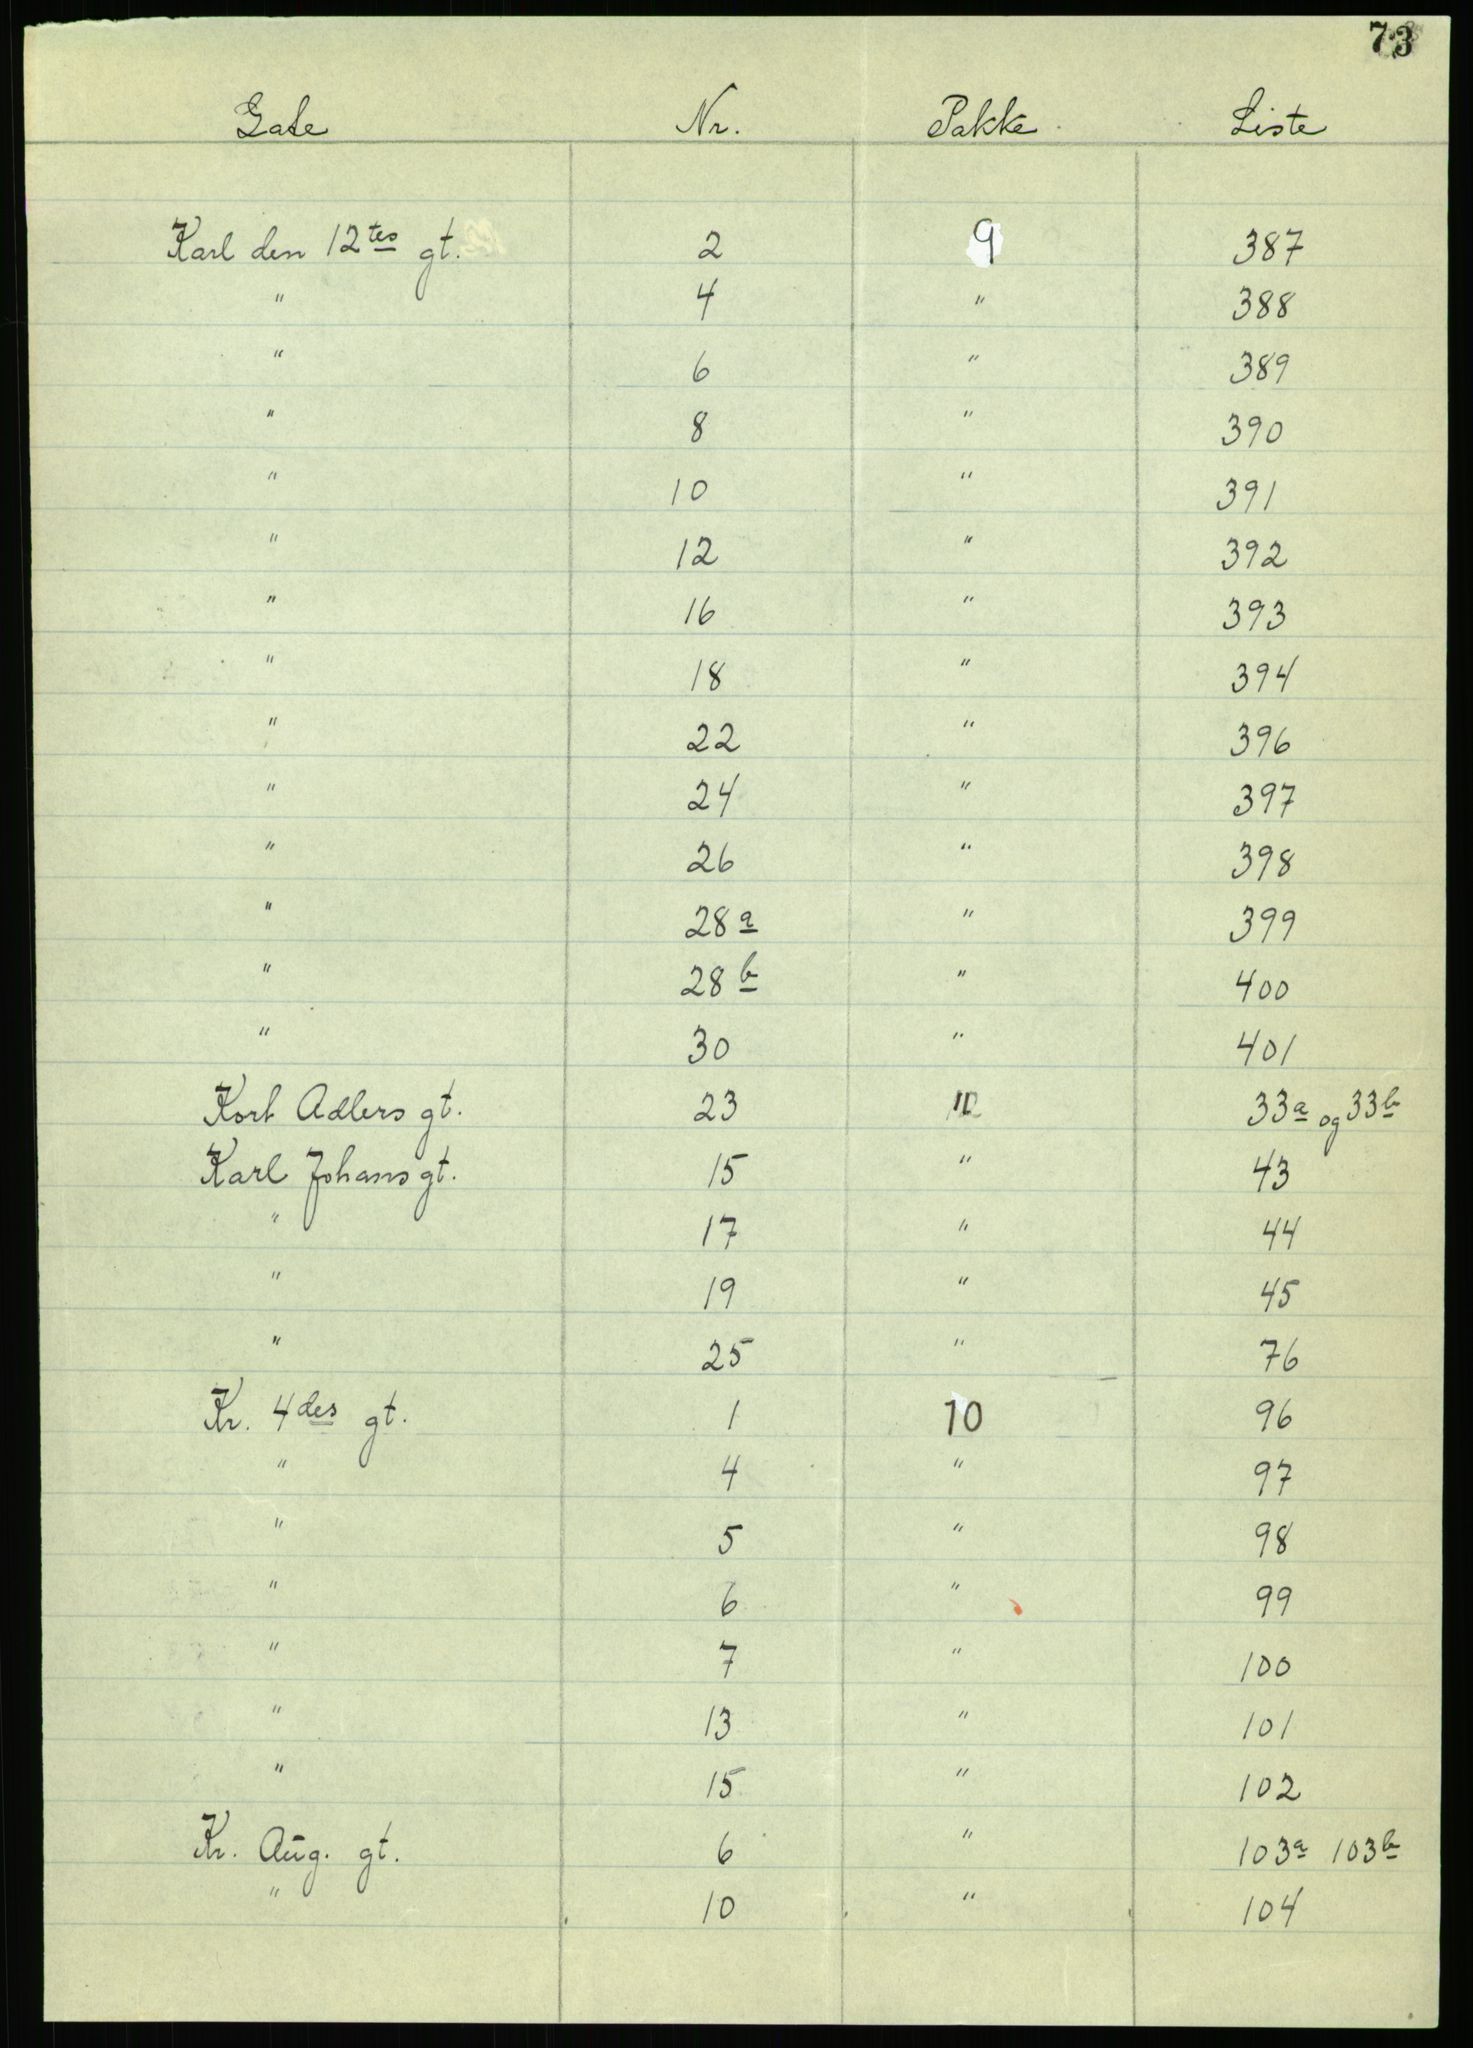 73
Gate Nr. Pakke Liste
Karl den 12tes gt. 2 9 387
" 4 " 388
" 6 " 389
" 8 " 390
" 10 " 391
" 12 " 392
" 16 " 393
" 18 " 394
" 22 " 396
" 24 " 397
" 26 " 398
" 28a " 399
" 28b " 400
" 30 " 401
Kort Adlers gt. 23 33a og 33b
Karl Johans gt. 15 " 43
" 17 " 44
" 19 " 45
" 25 " 76
Kr. 4des gt. 1 10 96
" 4 " 97
" 5 " 98
" 6 " 99
" 7 " 100
" 13 " 101
" 15 " 102
Kr. Aug. gt. 6 " 103a 103b
" 10 " 104